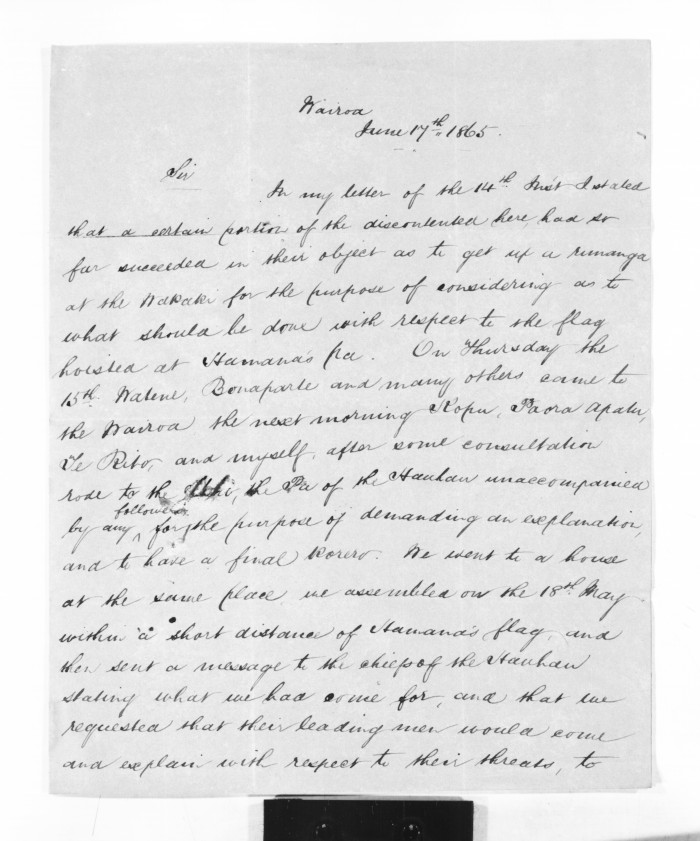 Wairoa
June 17th 1865.
Sir
In my letter of the 14th Inst I stated
that a certain portion of the discontented here, had so
far succeeded in their object as to get up a runanga
at the Wakaki for the purpose of considering as to
what should be done with respect to the flag
hoisted at Hamana's Pa. On Thursday the
15th Watene, Bonaparte and many others came to
the Wairoa the next morning Kopu, Paora Apatu,
Te Rito, and myself, after some consultation
rode to the Uhi, the Pa of the Hauhau unaccompanied
by any followers for the purpose of demanding an explanation,
and to have a final Korero. We went to a house
at the same place we assembled on the 18th May
within a short distance of Hamana's flag, and
then sent a message to the chiefs of the Hauhau
stating what we had come for, and that we
requested that their leading men would come
and explain with respect to their threats, to